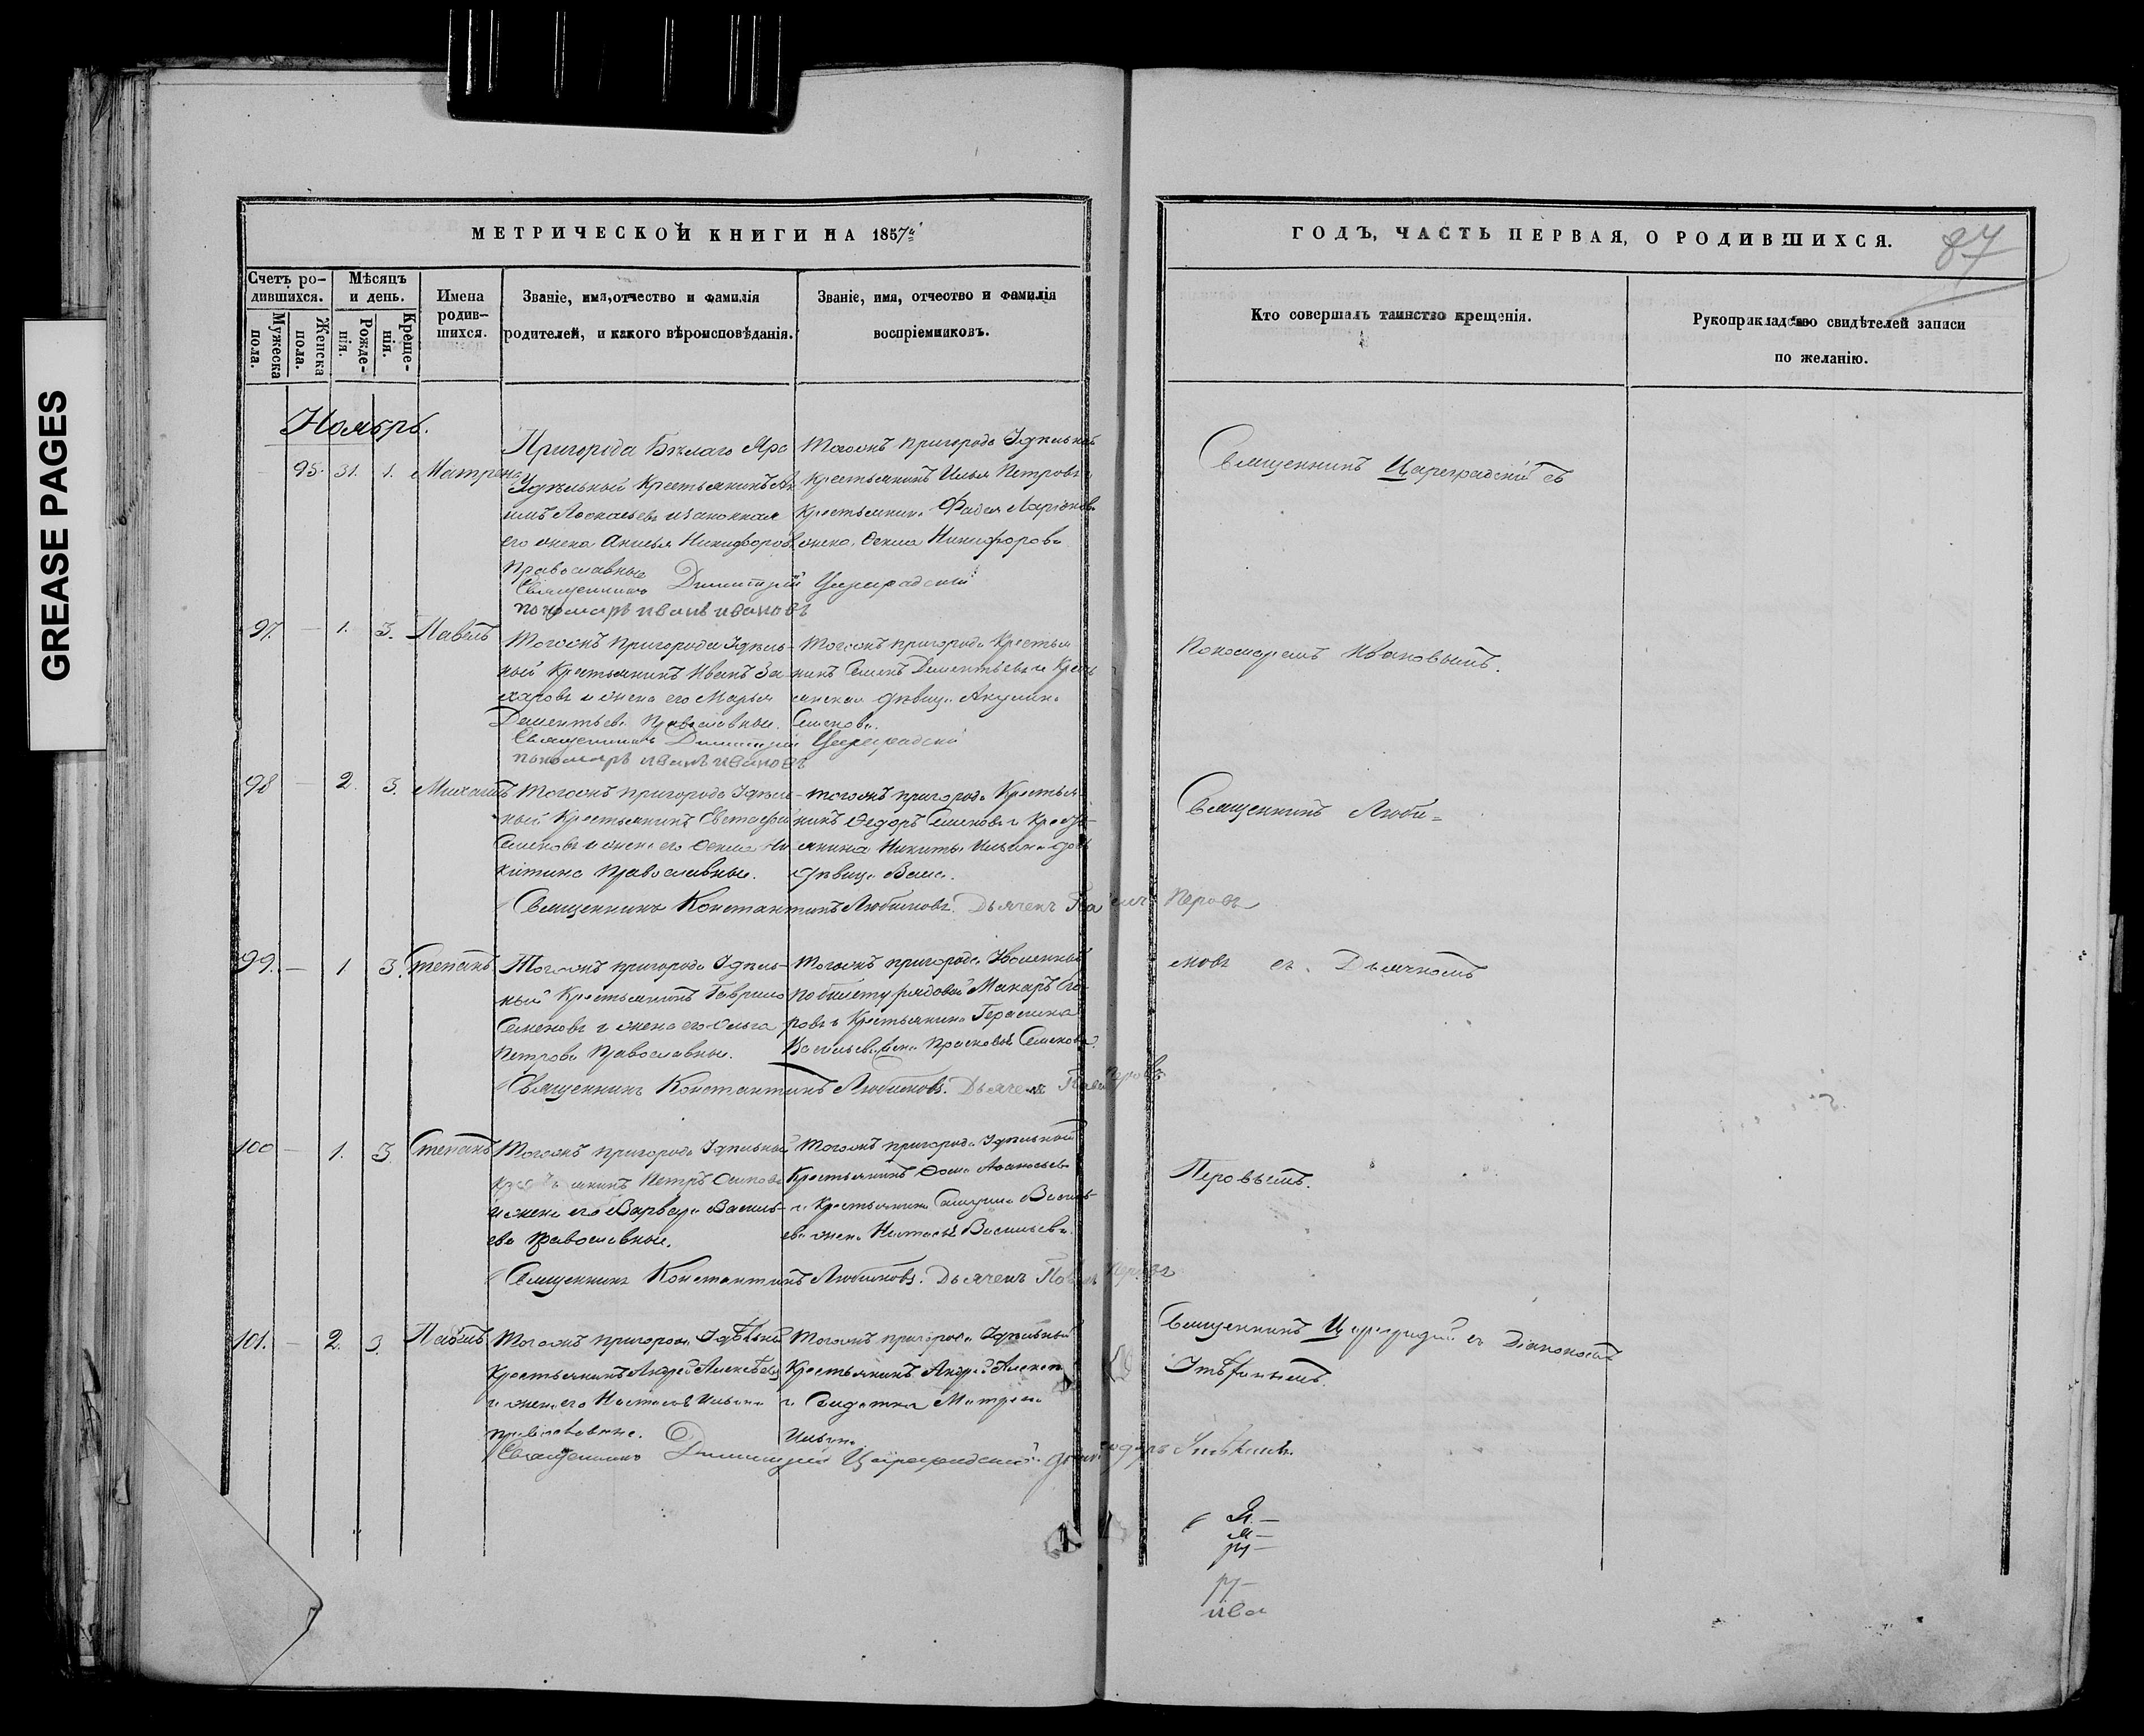 GREASE PAGES
МЕТРИЧЕСКОЙ КНИГИ НА 1857й
ГОДЪ, ЧАСТЬ ПЕРВАЯ, О РОДИВШИХСЯ.
87
Счетъ ро-
дившихся.
Мужеска
пола.
Женска
пола.
Мѣсяцъ
и день.
Рожде-
нія.
Креще-
нія.
Имена
родив-
шихся.
Званіе, имя, отчество и фамилія
родителей, и какого вѣроисповѣданія.
Званіе, имя, отчество и фамилія
воспріемниковъ.
Кто совершалъ таинство крещенія.
Рукоприкладство свидѣтелей записи
по желанію.
Ноябрь.
95. 31. 1. Матрона
Пригорода Бѣлаго Яра
Удѣльный Крестьянинъ Ак
имъ законная
его жена Никифоров
Православные
Тогожъ пригорода
Крестьянинъ Илья Петровъ и
Крестьянина Фадея Ларіонова
жена Никифорова
Священникъ Цареградскій съ
Священникъ Димитрій Цареградскій
пономарь иванъ ивановъ
97. — 1. 3. Павелъ
Тогожъ Пригорода Удѣль-
ный Крестьянинъ Иванъ За-
харовъ и жена его Марья
Дементьева Православные.
Тогожъ пригорода Крестья
нинъ Семенъ Дементьевъ и Крест
янская дѣвица Акулина
Семенова.
Пономаремъ Ивановымъ.
Священникъ Димитрій Цареградскій
пономарь иванъ ивановъ
98 — 2. 3. Михаилъ
Тогожъ пригорода Удѣль-
ный Крестьянинъ Евстафій
Семеновъ и жена его Ни
китина Православные.
тогожъ пригорода Крестья
нинъ Ѳедоръ Семеновъ и Крест
янина Никиты Ильина дочь
дѣвица
Священникъ Люби=
Священникъ Константинъ Любимовъ. Дьячекъ Павелъ Перовъ
99. — 1 3. Степанъ
Тогожъ пригорода Удѣль-
ный Крестьянинъ Гаврило
Семеновъ и жена его Ольга
Петрова Православные.
Тогожъ пригорода Уволенный
по билету рядовой Макаръ
ровъ и Крестьянина Герасима
Васильева жена Прасковья Семенова.
мовъ съ Дьячкомъ
Священникъ Константинъ Любимовъ. Дьячекъ Павелъ Перовъ
100 — 1. 3. Степанъ
Тогожъ пригорода Удѣльный
Петръ Осиповъ
и жена его Варвара Василь-
ева Православные.
Тогожъ пригорода Удѣльный
Крестьянинъ Ѳома Аѳанасьевъ
и Крестьянина Василь-
ева жена Настасья Васильева.
Перовымъ.
Священникъ Константинъ Любимовъ. Дьячекъ Павелъ Перовъ
101. — 2. 3. Павелъ
Тогожъ пригорода Удѣльный
Крестьянинъ Андрей Алексѣевъ
и жена его Настасья Ильина
православные.
Тогожъ пригорода Удѣльный
Крестьянинъ Андрей
и Солдатка Матрена
Ильина
Священникъ Цареградскій съ Діакономъ
Священникъ Димитрій Цареградскій
ива